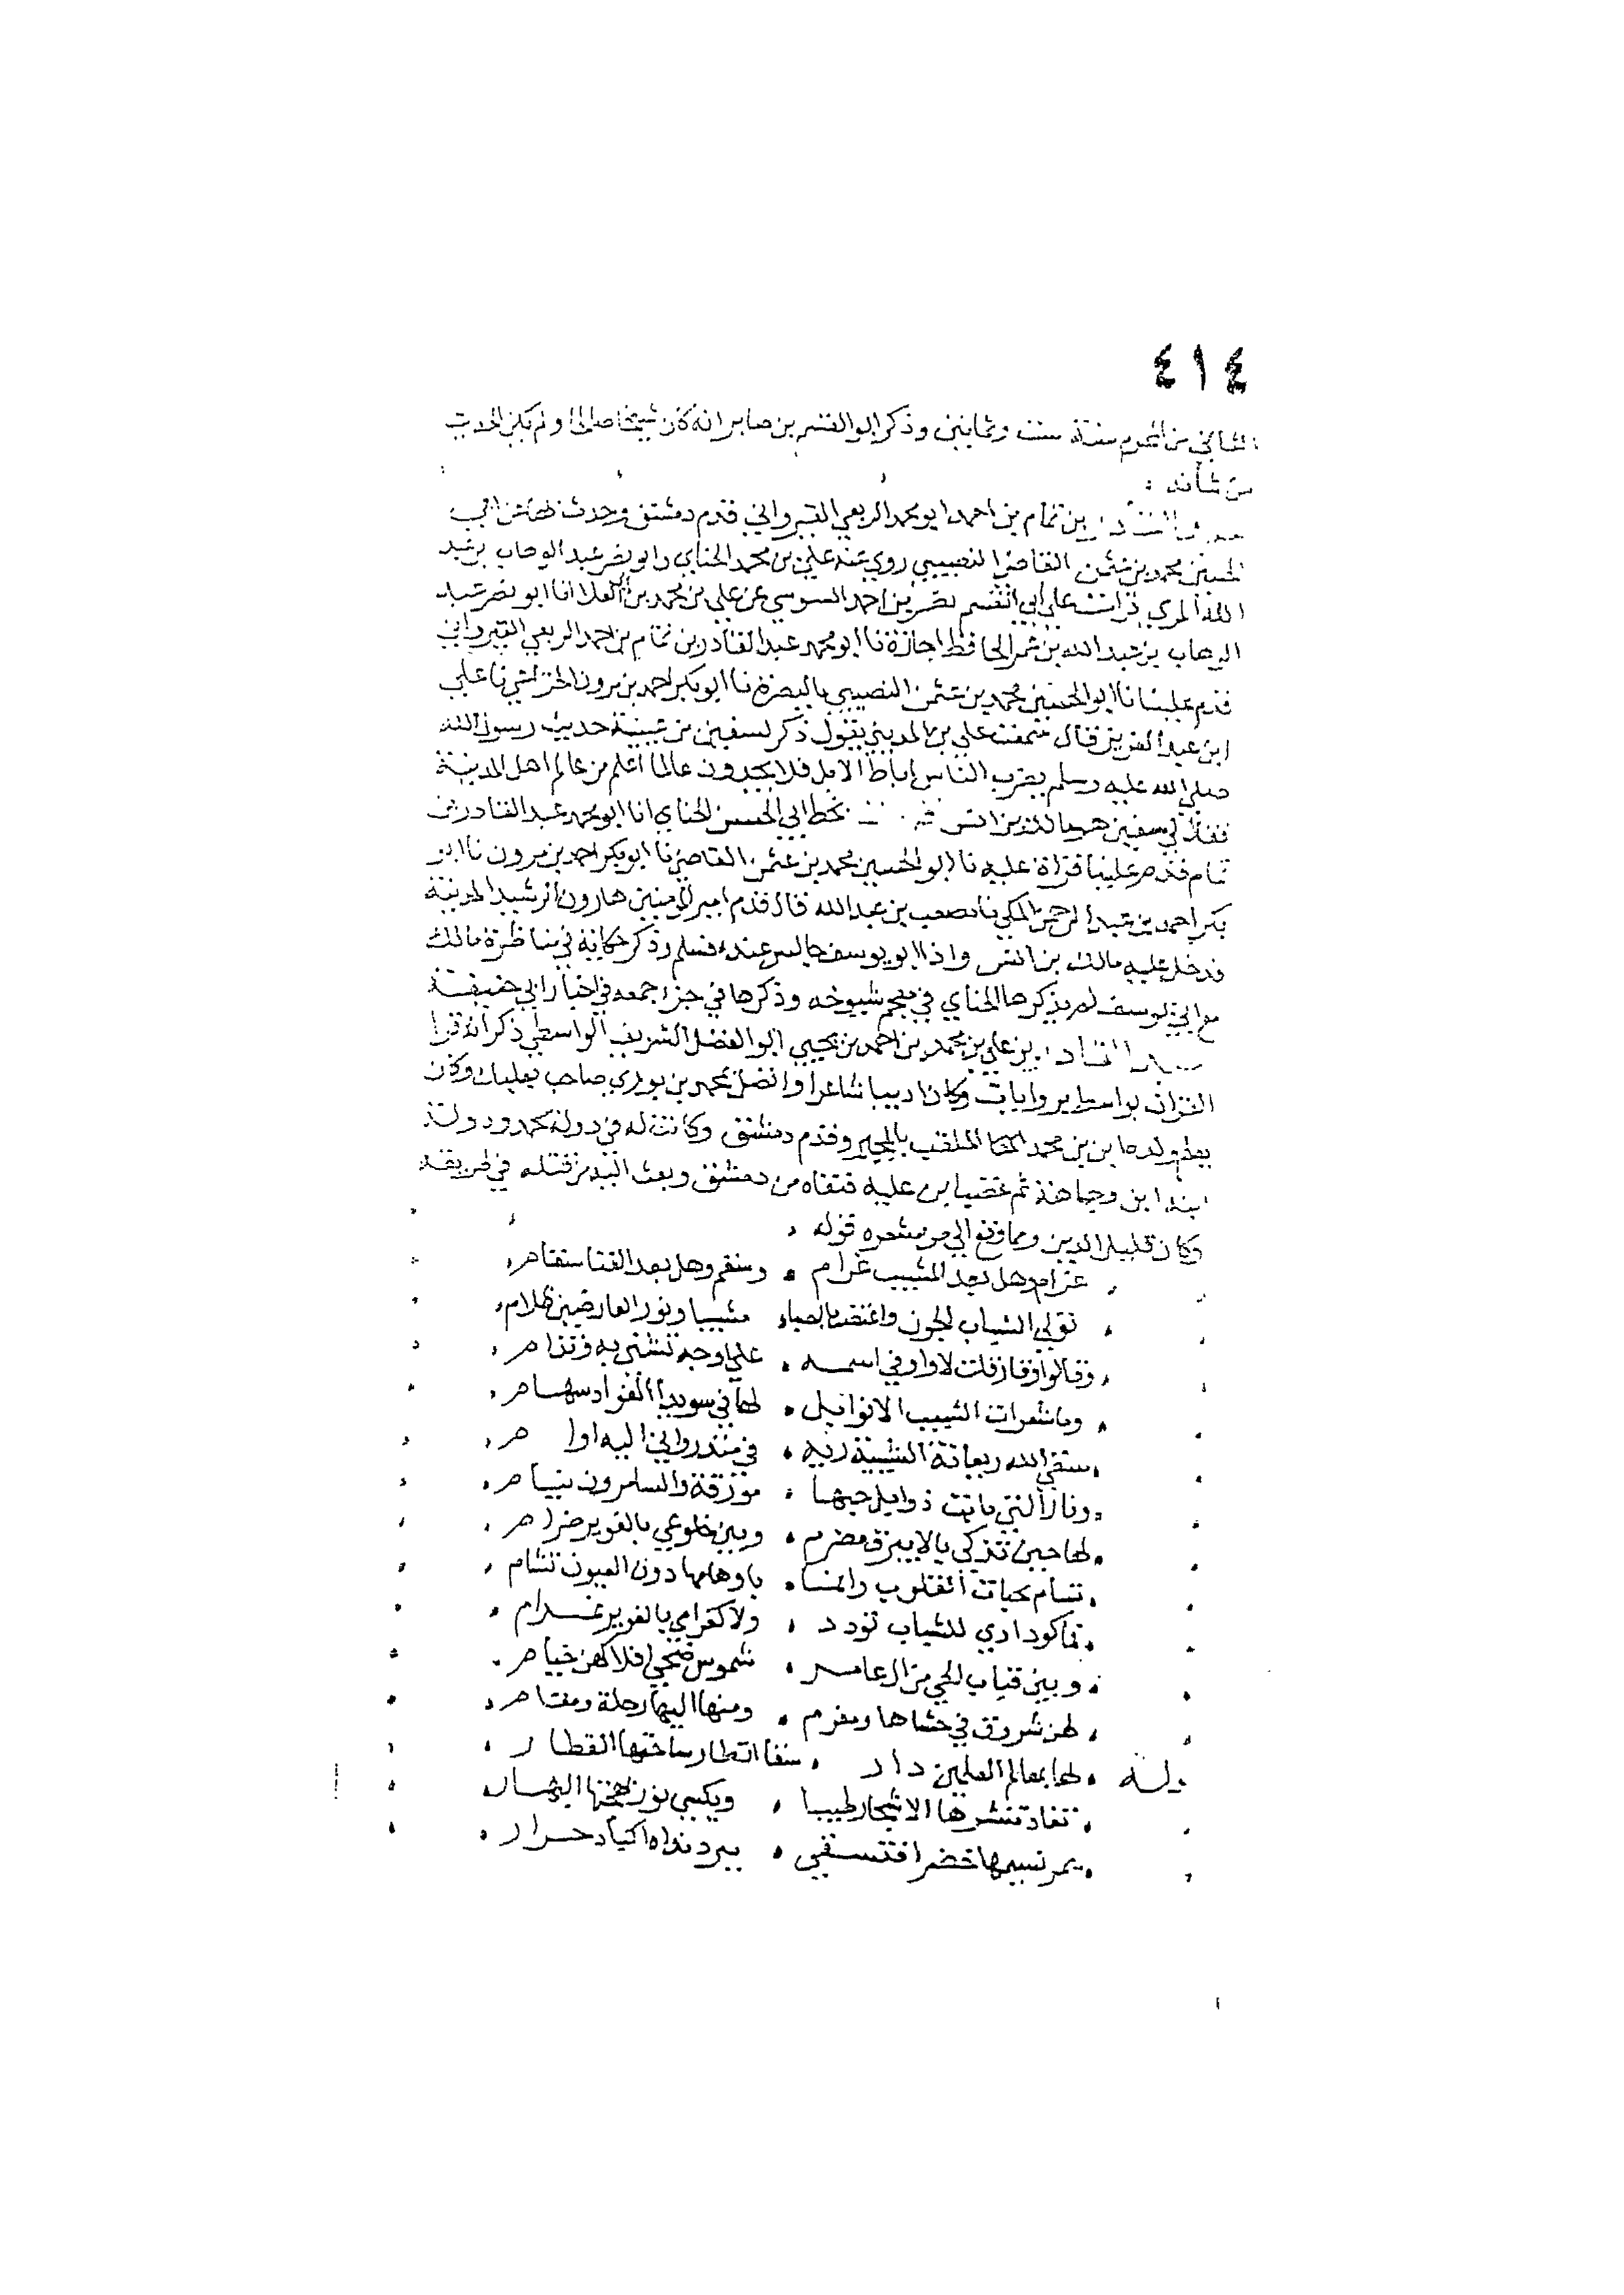 ٤١٤
الثاني من المحرم سنة ست وثمانين وذكر ابو القسم بن صابر انه كان شيخا صالحا ولم يكن الحديث
من شانه
عبد القادر بن تمام بن احمد ابو محمد الربعي القيرواني قدم دمشق وحدث بها عن ابي
الحسين محمد بن عثمن القاضي النصيبي روي عنه علي بن محمد الحناي وابو نصر عبد الوهاب بن عبد
الله المري قرات علي ابي القسم نصر بن احمد السوسي عن علي بن محمد بن ابي العلا انا ابو نصر عبد
الوهاب بن عبد الله بن عمر الحافظ اجازة نا ابو محمد عبد القادر بن تمام بن احمد الربعي القيرواني
قدم علينا نا ابو الحسين محمد بن عثمن النصيبي بالبصرة نا ابو بكر احمد بن مرون نا علي
ابن عبد العزيز قال سمعت علي بن المديني يقول ذكر لسفين بن عيينة حديث رسول الله
صلي الله عليه وسلم يضرب الناس اباط الابل فلا يجدون عالما اعلم من عالم اهل المدينة
فقال لي سفين هو مالك بن انس بخط ابي الحسن الحناي انا ابو محمد عبد القادر بن
تمام قدم علينا قراة عليه نا ابو الحسين محمد بن عثمن القاضي نا ابو بكر احمد بن مرون نا ابو
بكر احمد بن عبد الرحمن المكي نا مصعب بن عبد الله قال قدم امير المومنين هارون الرشيد المدينة
فدخل عليه مالك بن انس واذا ابو يوسف جالس عنده فسلم وذكر حكاية في مناظرة مالك
مع ابي يوسف لم يذكرها الحناي في معجم شيوخه وذكرها في جزء جمعه في اخبار ابي حنيفة
عبد القادر بن علي بن محمد بن احمد بن يحيي ابو الفضل الشريف الواسطي ذكر انه قرا
القران بواسط بروايات وكان اديبا شاعرا واتصل بمحمد بن بوري صاحب بعلبك وكان
ولده ابن بن محمد الملقب بالمجير وقدم دمشق وكانت له في دولة محمد ودولة
ابنه ابن وجاهة ثم غضب ابن عليه فنفاه من دمشق وبعث اليه من قتله في طريقه
وكان قليل الدين ومما وقع الي من شعره قوله
غرام وهل بعد المشيب غرام وسقم وهل بعد الفنا سقام
تولي الشباب الجون واعتضت بالصبا مشيبا ونور العارضين ظلام
وقالوا وقار قلت لا واو في اسمه علي وجه تشني به وتذام
وما شعرات الشيب الا نوابل لها في سويدا الفواد سهام
سقي الله ريعانة الشيبة ربه في اليه اوام
ونار التي باتت ذوابل حيها مورقة والسامرون نيام
لها حين تذكي بالابيرق مضرم وبين ضلوعي بالغوير ضرام
تسام بحبات القلوب والمنا باوهامها دون العيون تشام
تاكود اري للشباب تودد ولا كغرامي بالغوير غرام
وبين قباب الحي من ال عامر شموس ضحي افلاكهن خيام
لهن شروق في حشاها ومغرم ومنها اليها رحلة ومقام
وله لها بمعالم العلمين دار سقا اقطار ساحتها القطار
تفاد بنشرها الاشجار طيبا ويكسي نور بهجتها البهار
يمر نسيمها خضرا فتسقي ببرد نداه اكباد حرار